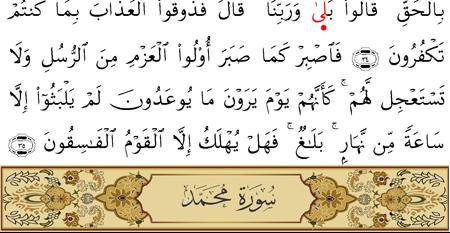 بِٱلْحَقِّ ۖ قَالُوا۟ بَلَىٰ وَرَبِّنَا ۚ قَالَ فَذُوقُوا۟ ٱلْعَذَابَ بِمَا كُنتُمْ
تَكْفُرُونَ ٣٤ فَٱصْبِرْ كَمَا صَبَرَ أُو۟لُوا۟ ٱلْعَزْمِ مِنَ ٱلرُّسُلِ وَلَا
تَسْتَعْجِل لَّهُمْ ۚ كَأَنَّهُمْ يَوْمَ يَرَوْنَ مَا يُوعَدُونَ لَمْ يَلْبَثُوٓا۟ إِلَّا
سَاعَةً مِّن نَّهَارٍۭ ۚ بَلَـٰغٌ ۚ فَهَلْ يُهْلَكُ إِلَّا ٱلْقَوْمُ ٱلْفَـٰسِقُونَ ٣٥
سُورَةُ مُحَمَّد